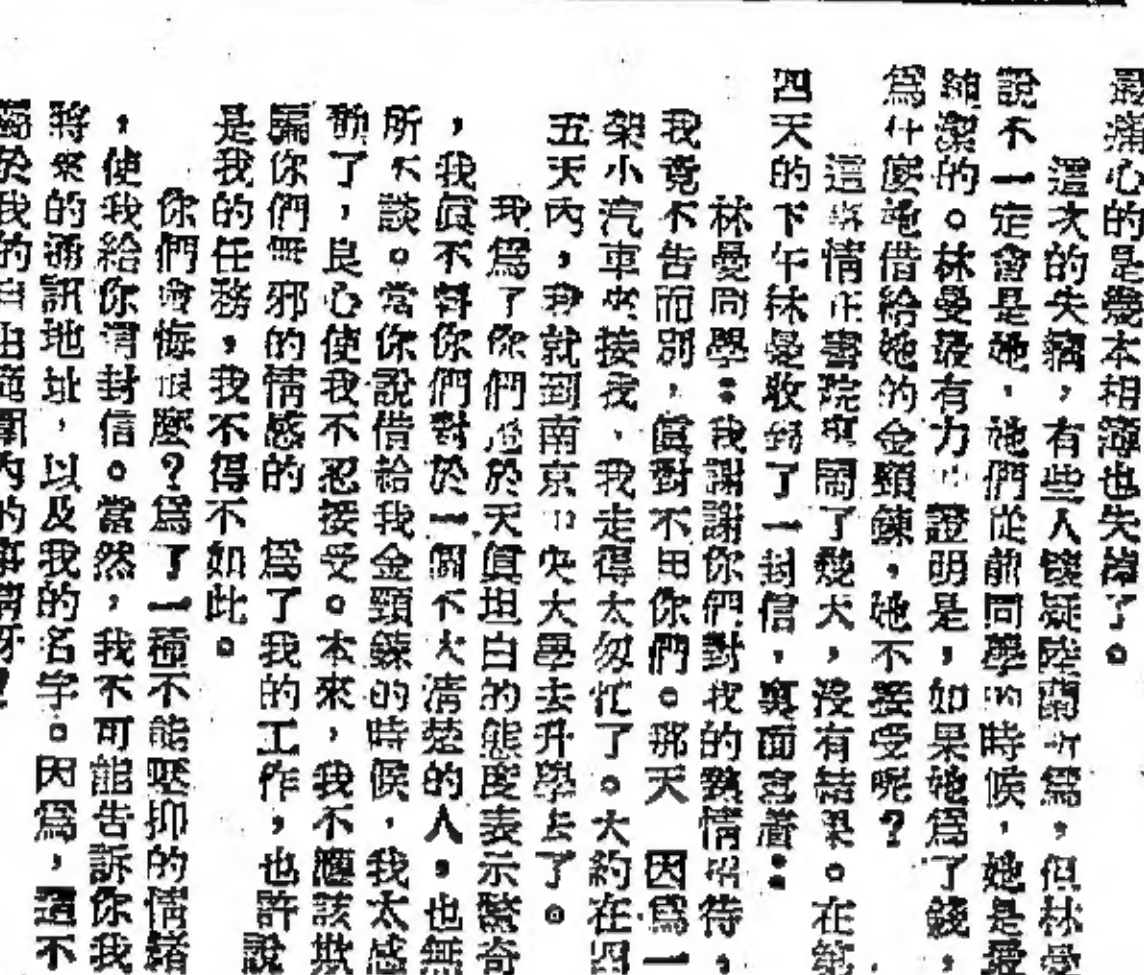 最痛心的是幾本相簿也失掉了。
這次的失竊，有些人懷疑陸蘭所爲，但林曼
說不一定會是她，她們從前同學的時候，她是最
純潔的。林曼最有力的證明是，如果她爲了錢，
爲什麼她借給她的金頸鍊，她不接受呢？
這事情在書院裏鬧了幾天，沒有結果。在第
四天的下午林曼收到了一封信，裏面寫着：
林曼同學：我謝謝你們對我的熱情招待，
我竟不告而別，真對不田你們。那天 因爲一
架小汽車來接我，我走得太匆忙了。大約在四
五天內，我就到南京中央大學去升學去了。
我爲了你們過於天真坦白的態度表示驚奇
，我真不料你們對於一個不大清楚的人，也無
所不談。當你說借給我金頸鍊的時候，我太感
動了，良心使我不忍接受。本來，我不應該欺
騙你們無邪的情感的 爲了我的工作，也許說
是我的任務，我不得不如此。
你們會悔恨麼？爲了一種不能壓抑的情緒
，使我給你謂封信。當然，我不可能告訴你我
將來的通訊地址，以及我的名字。因爲，這不
屬於我的自由範圍內的事情呀！